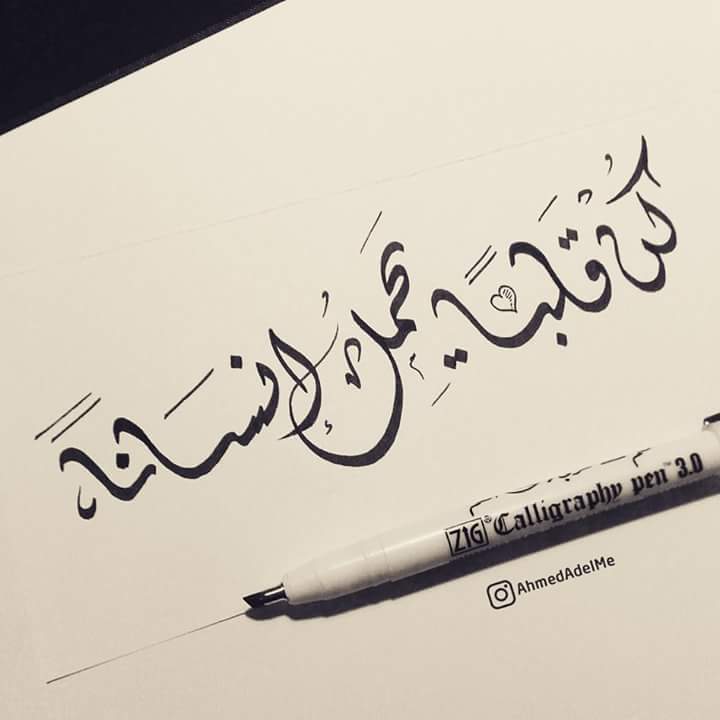 كُن قَلباً يَحمِلُ إنسَاناً
ZIG® Calligraphy pen™ 3.0
AhmedAdelMe